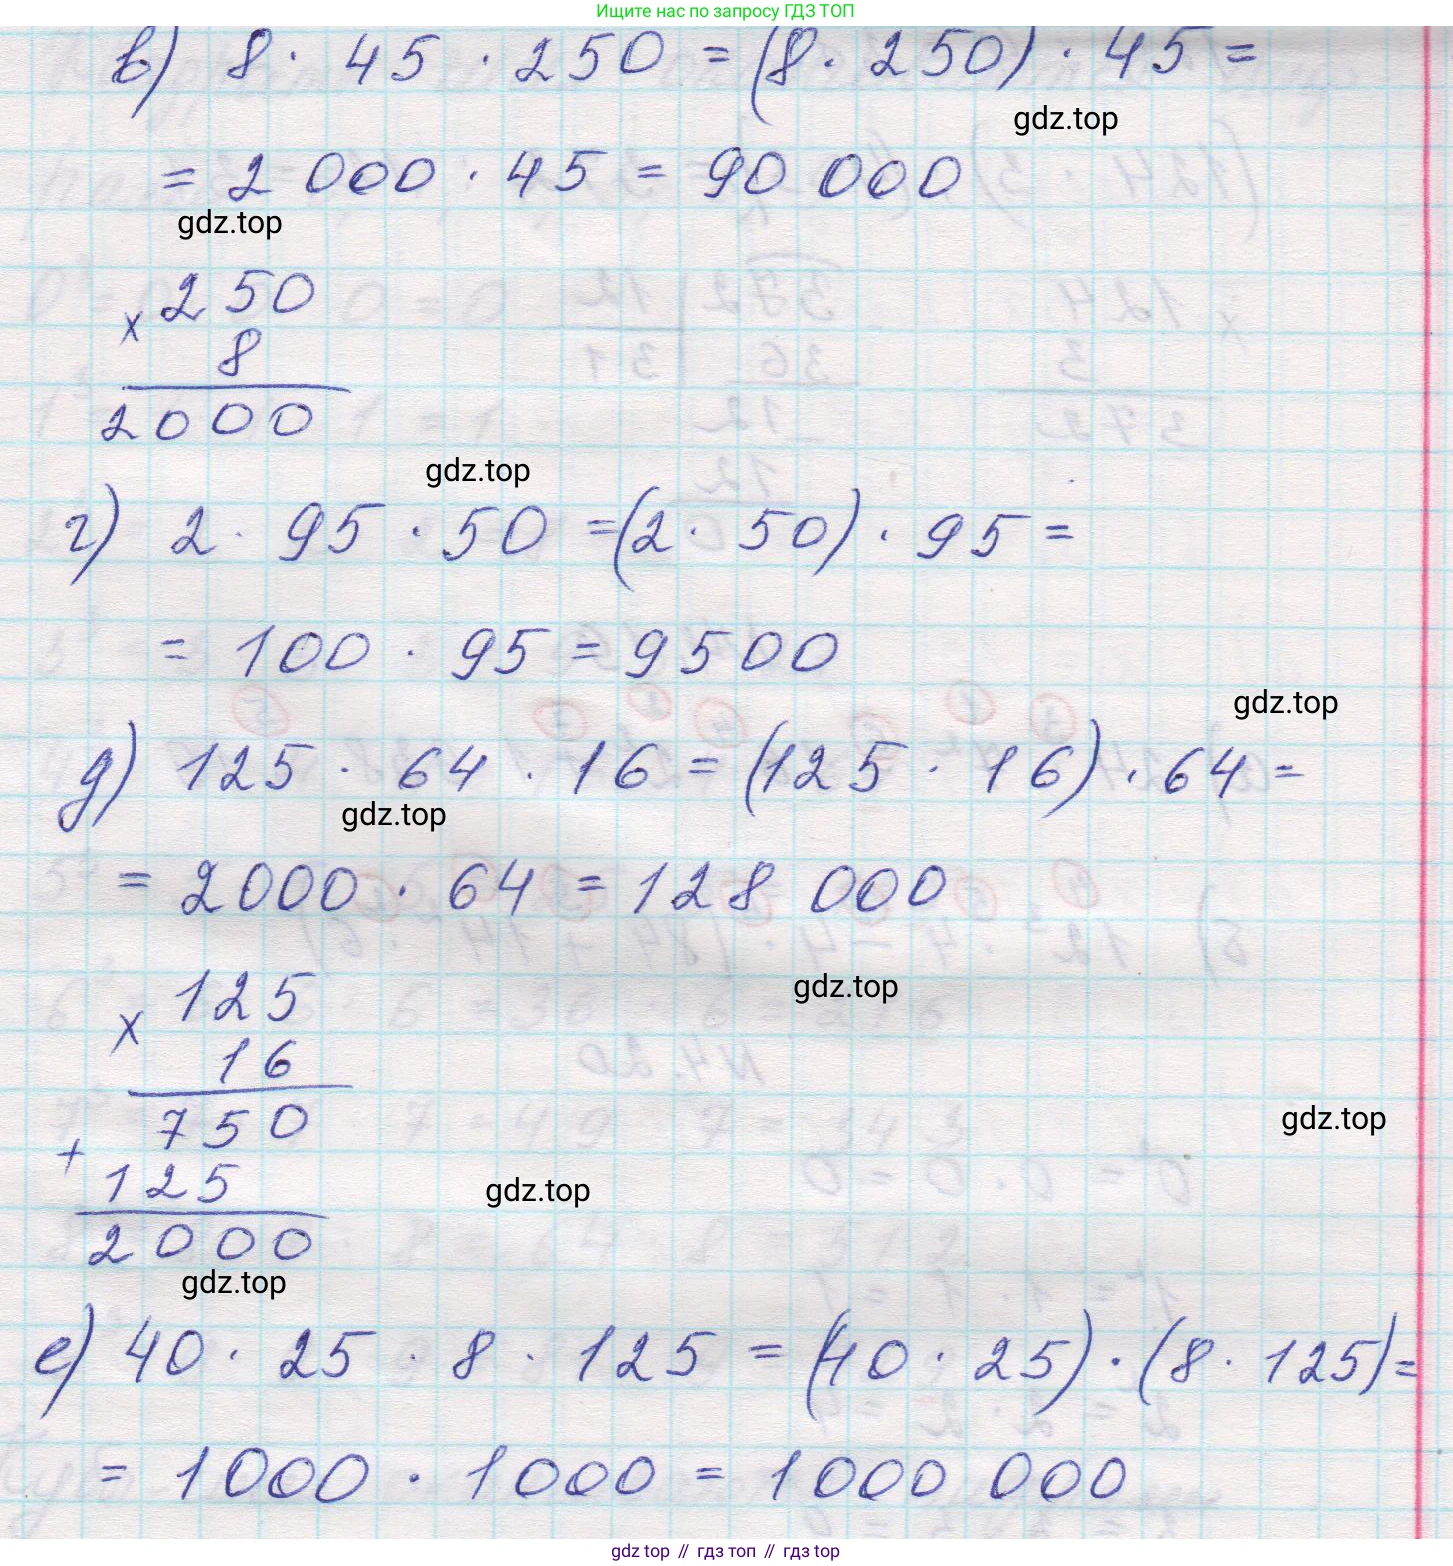 Ищите нас по запросу ГДЗ ТОП
в) 8 · 45 · 250 = (8 · 250) · 45 =
gdz.top
= 2 000 · 45 = 90 000
gdz.top
× 250
8
2000
gdz.top
г) 2 · 95 · 50 = (2 · 50) · 95 =
= 100 · 95 = 9500
gdz.top
д) 125 · 64 · 16 = (125 · 16) · 64 =
gdz.top
= 2000 · 64 = 128 000
gdz.top
× 125
16
750
gdz.top
+ 125
gdz.top
2000
gdz.top
е) 40 · 25 · 8 · 125 = (40 · 25) · (8 · 125) =
= 1000 · 1000 = 1000 000
gdz top // гдз топ // гдз top